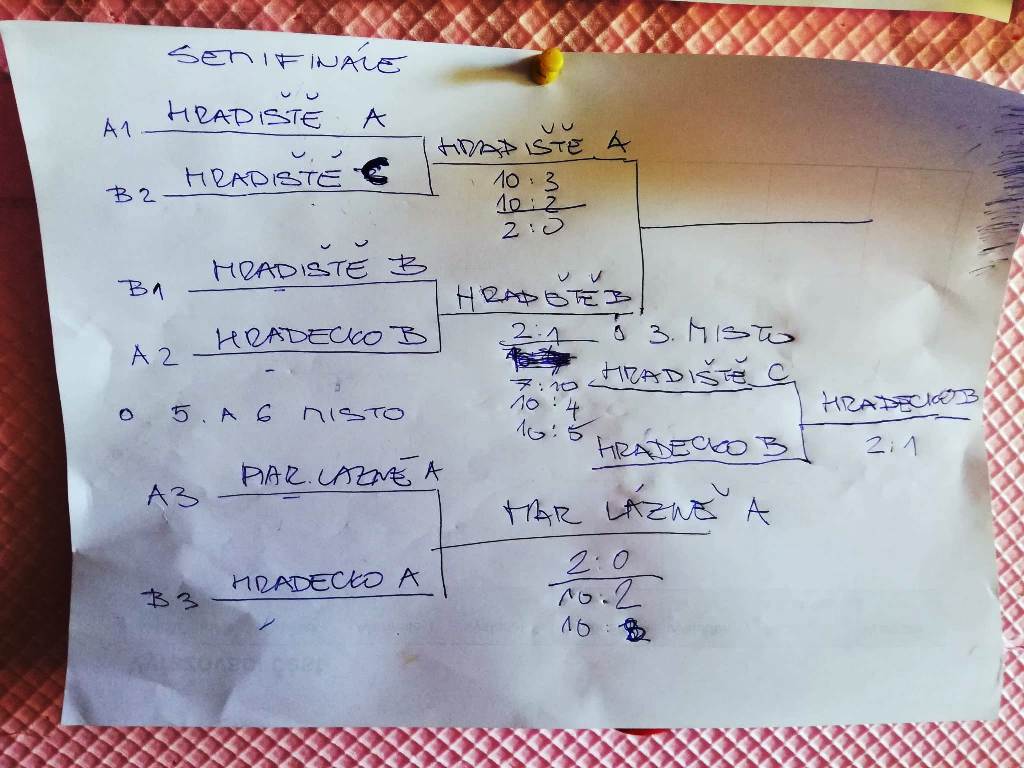 SEMIFINÁLE
A1 HRADIŠTĚ A
HRADIŠTĚ A
B2 HRADIŠTĚ C
10:3
10:2
2:0
B1 HRADIŠTĚ B
HRADIŠTĚ B
A2 HRADECKO B
2:1
O 3. MISTO
7:10
10:4
10:5
HRADIŠTĚ C
HRADECKO B
HRADECKO B
2:1
O 5. A 6 MISTO
A3 MAR. LAZNĚ A
MAR LÁZNĚ A
B3 HRADECKO A
2:0
10:2
10: